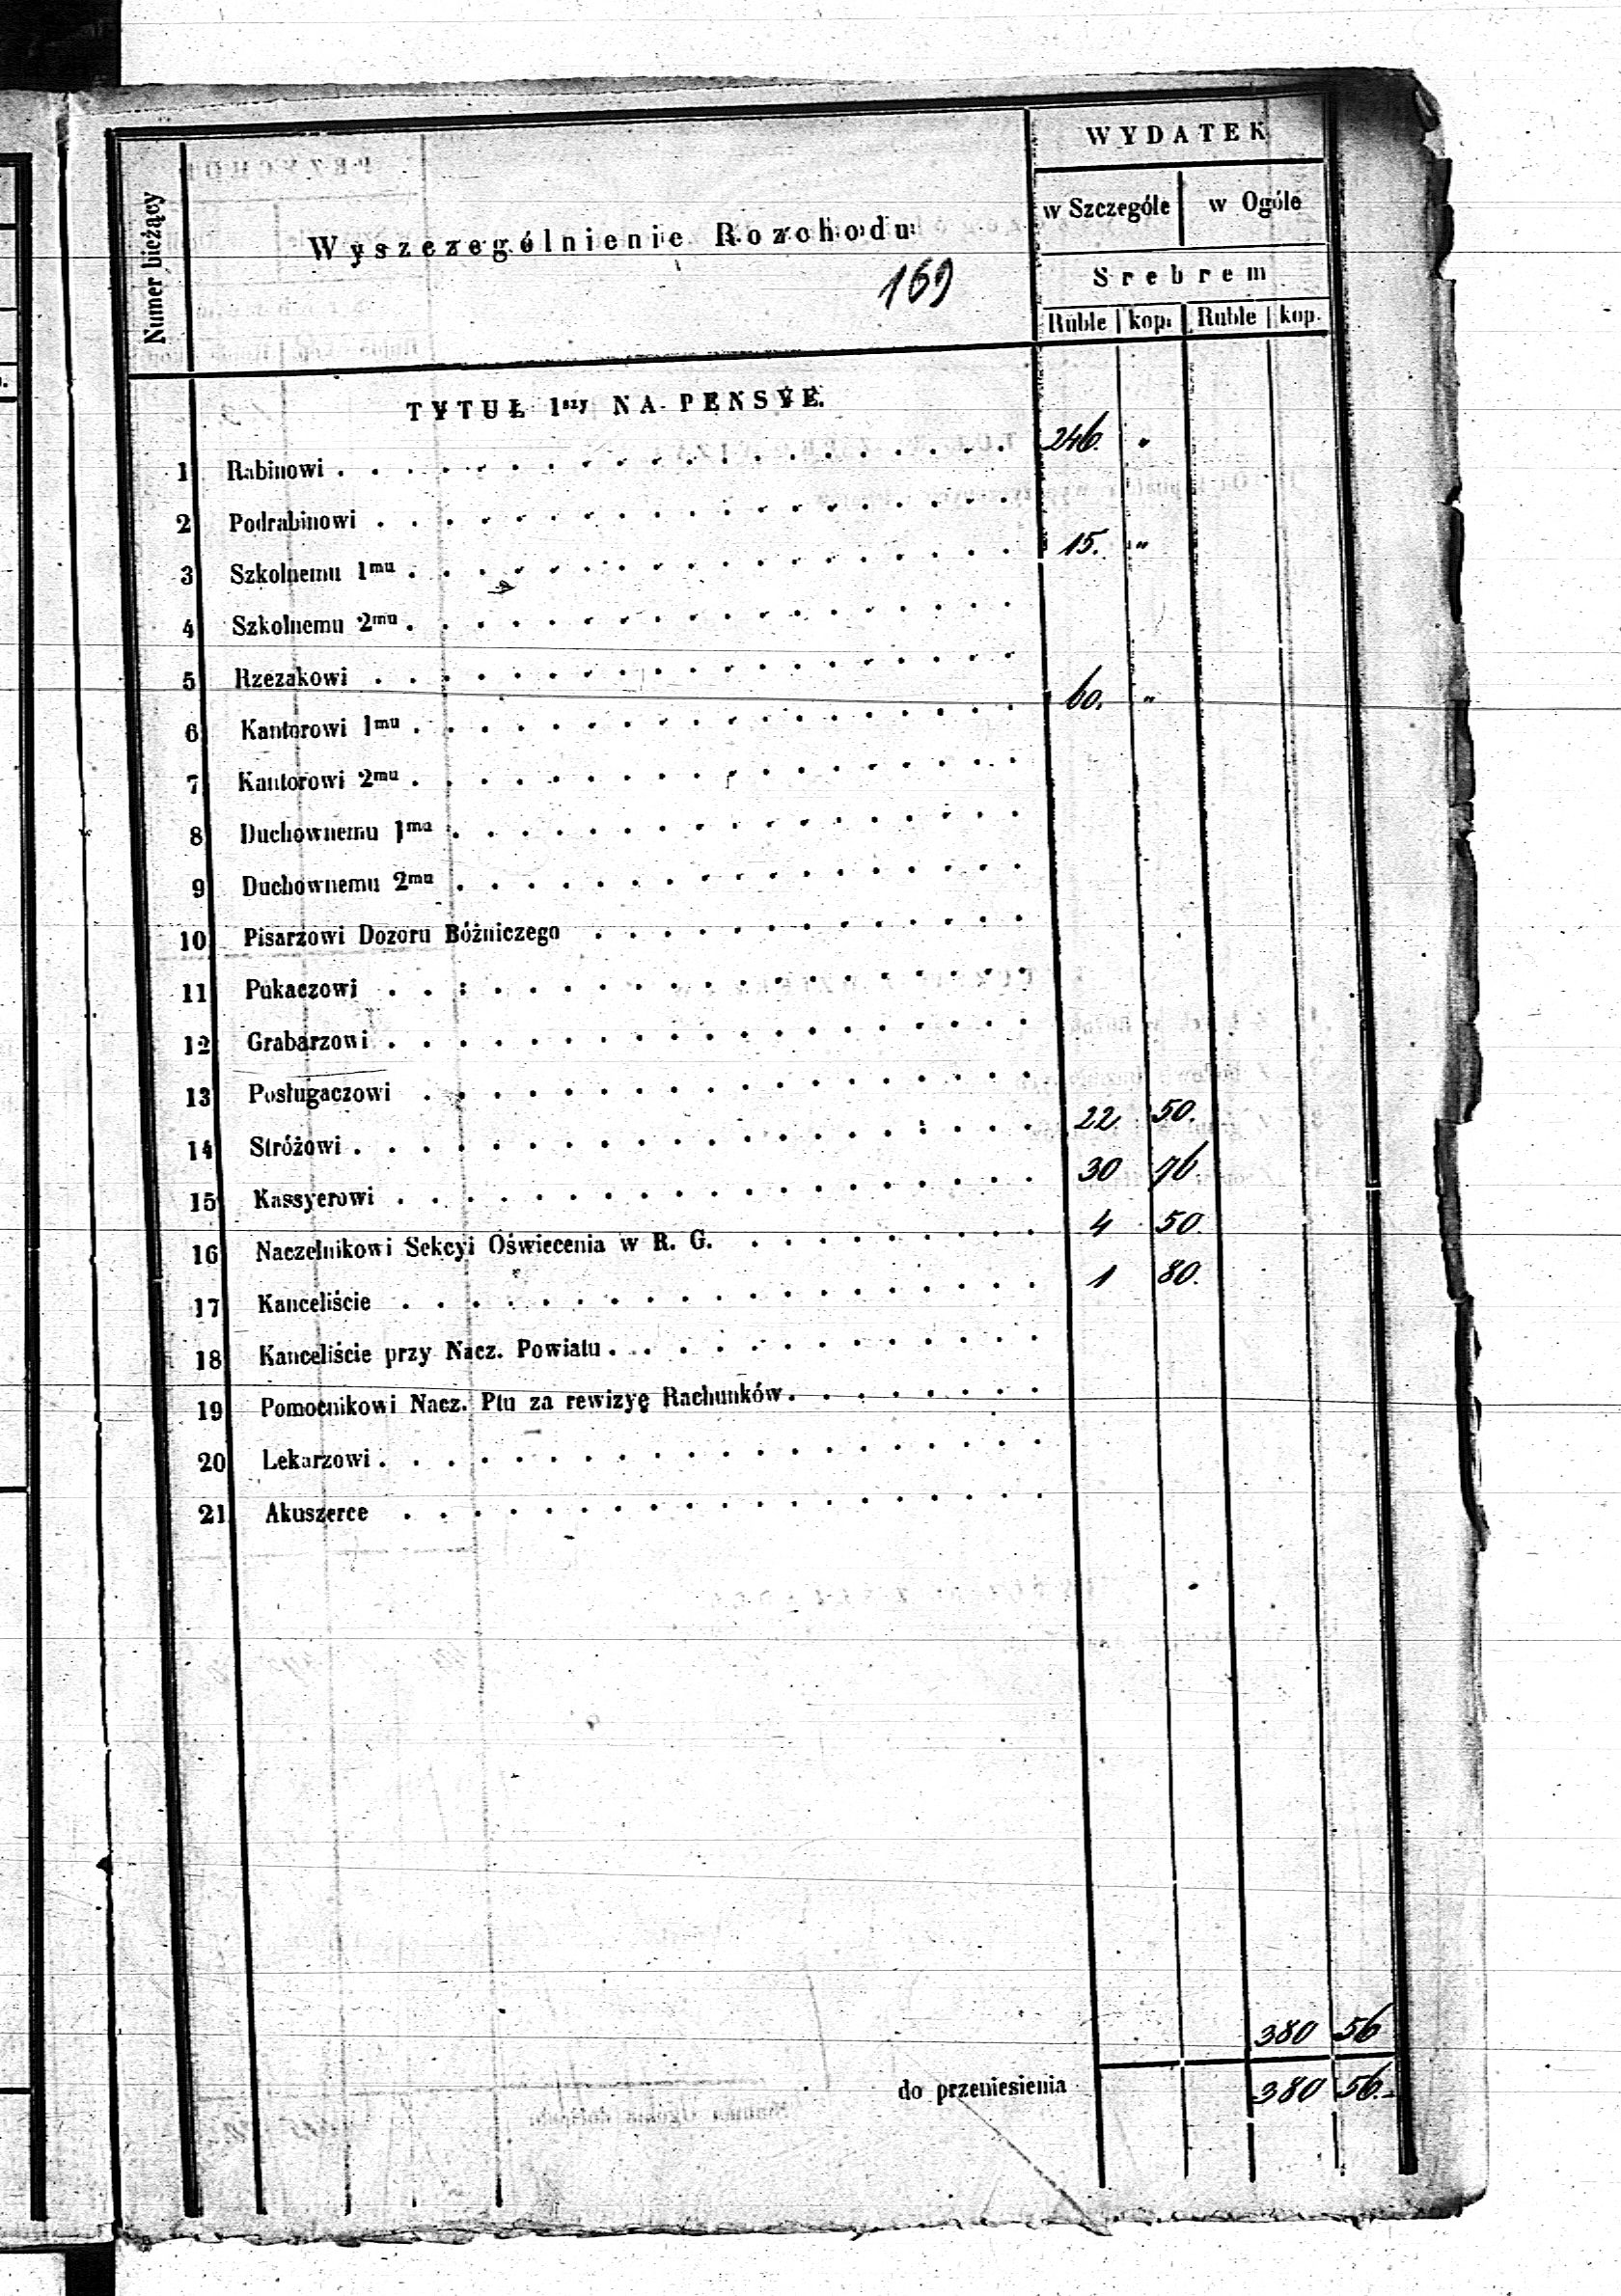 Numer bieżący
Wyszczególnienie Rozchodu
169
WYDATEK
w Szczególe w Ogóle
Srebrem
Ruble kop. Ruble kop.
TYTUŁ 1szy NA PENSYE.
1 Rabinowi 246. "
2 Podrabinowi
3 Szkolnemu 1mu 15. "
4 Szkolnemu 2mu
5 Rzezakowi
6 Kantorowi 1mu 60. "
7 Kantorowi 2mu
8 Duchownemu 1mu
9 Duchownemu 2mu
10 Pisarzowi Dozoru Bóżniczego
11 Pukaczowi
12 Grabarzowi
13 Posługaczowi
14 Stróżowi 22 50.
15 Kassyerowi 30 76
16 Naczelnikowi Sekcyi Oświecenia w R. G. 4 50.
17 Kanceliście 1 80.
18 Kanceliście przy Nacz. Powiatu
19 Pomocnikowi Nacz. Ptu za rewizyę Rachunków
20 Lekarzowi
21 Akuszerce
380 56
do przeniesienia 380 56.